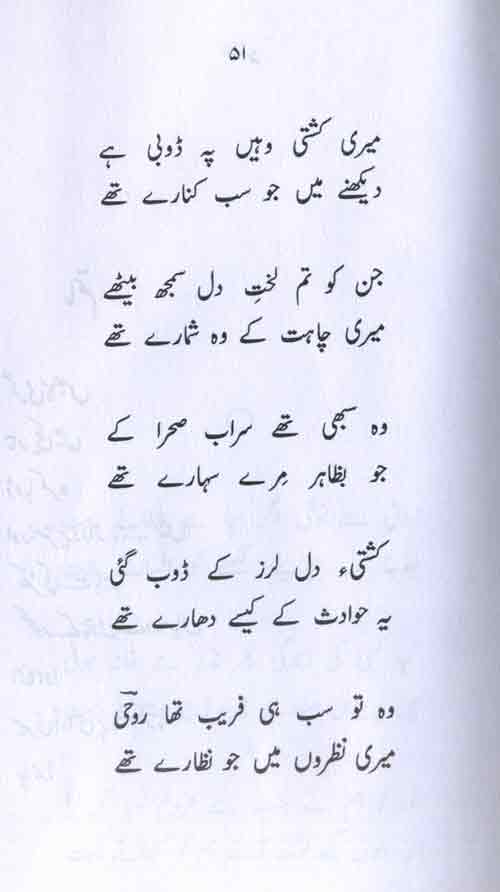 ۵۱
میری کشتی وہیں پہ ڈوبی ہے
دیکھنے میں جو سب کنارے تھے
جن کو تم لختِ دل سمجھ بیٹھے
میری چاہت کے وہ شمارے تھے
وہ سبھی تھے سراب صحرا کے
جو بظاہر مِرے سہارے تھے
کشتیء دل لرز کے ڈوب گئی
یہ حوادث کے کیسے دھارے تھے
وہ تو سب ہی فریب تھا روحیؔ
میری نظروں میں جو نظارے تھے